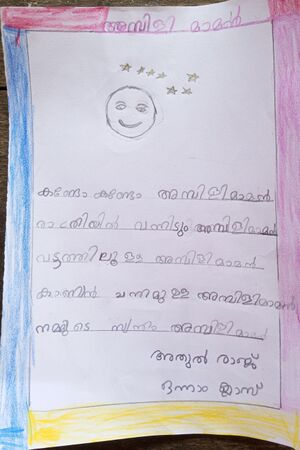 അമ്പിളി മാമൻ
കണ്ടോ കണ്ടോ അമ്പിളിമാമൻ
രാത്രിയിൽ വന്നിടും അമ്പിളിമാമൻ
വട്ടത്തിലൂ ഉള അമ്പിളിമാമൻ
കാണിൻ ചന്നമു ഉള അമ്പിളിമാമൻ
നമ്മുടെ സ്വന്തം അമ്പിളിമാമൻ
അതുൽ രാജ്
ഒന്നാം ക്ലാസ്